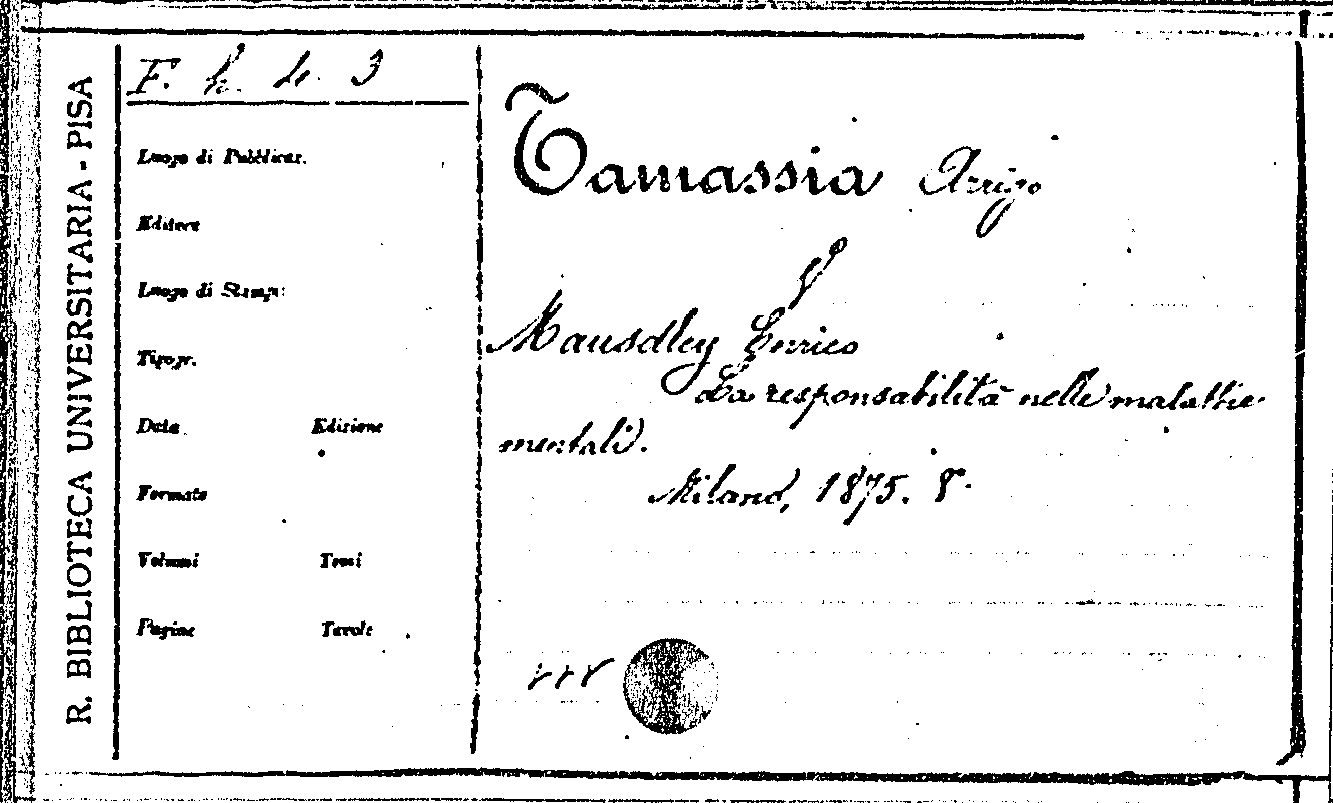 R. BIBLIOTECA UNIVERSITARIA - PISA
F. h. 4. 3
Luogo di Pubblicaz.
Editore
Luogo di Stampa
Tipogr.
Data Edizione
Formato
Volumi Tomi
Pagine Tavole
Tamassia Arrigo
V
Mausdley Enrico
La responsabilità nelle malattie
mentali.
Milano, 1875. 8°